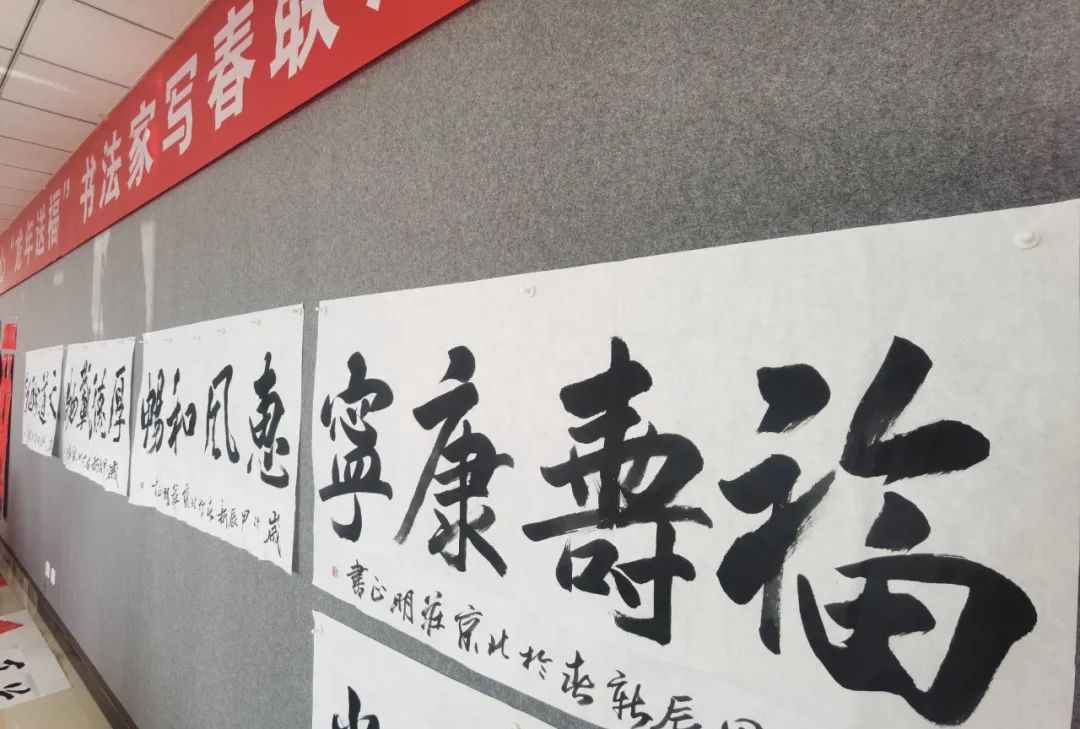 “龙年送福”书法家写春联
福壽康寧
甲辰新春於北京莊明正書
惠风和暢
歲次甲辰新春於北京莊明正書
厚德載物